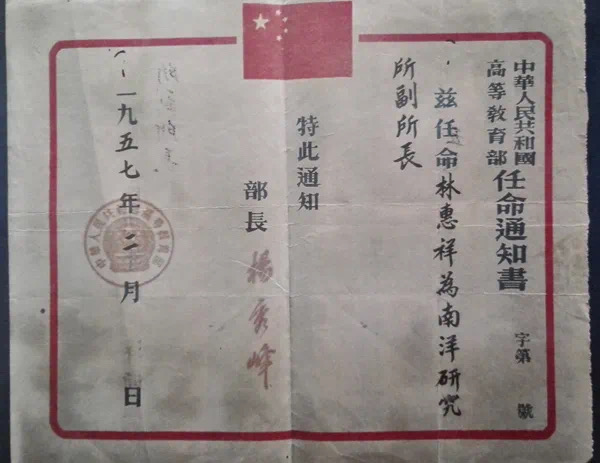 中華人民共和國
高等教育部
任命通知書
字第 號
兹任命林惠祥為南洋研究
所副所長
特此通知
部長 楊秀峰
一九五七年二月 日